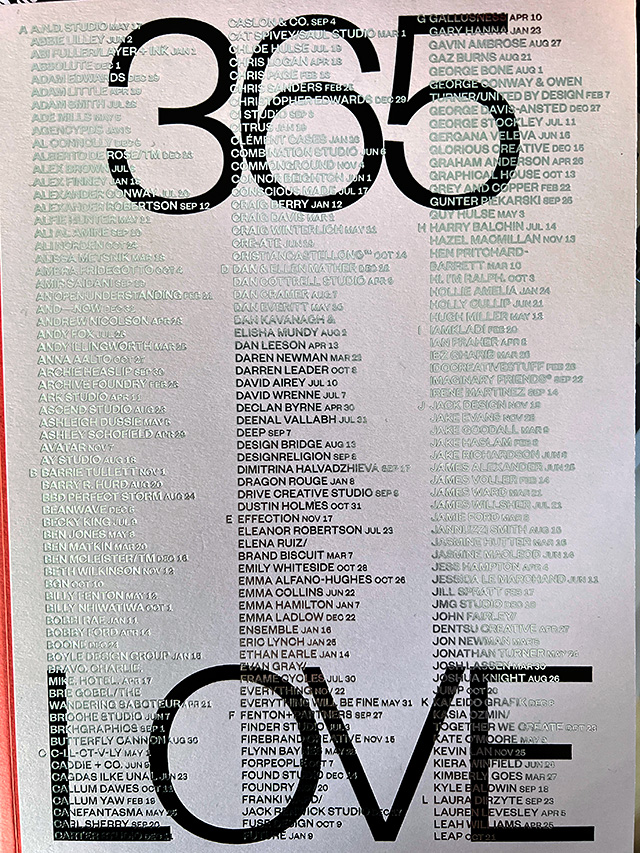 365
A A.N.D. STUDIO MAY 17
ABBIE LILLEY JUN 2
ABI FULLER/LAYER + INK JAN 1
ABSOLUTE DEC 1
ADAM EDWARDS DEC 29
ADAM LITTLE APR 29
ADAM SMITH JUL 28
ADE MILLS MAY 5
AGENCYPDS JAN 3
AL CONNOLLY DEC 5
ALBERTO DE ROSETTI DEC 23
ALEX BROWN JUL
ALEX FINNEY JAN 18
ALEXANDER CONWAY JUL 20
ALEXANDER ROBERTSON SEP 12
ALFIE HUNTER MAY 31
ALI AL AMINE SEP 10
ALI NORDEN OCT 24
ALISSA METSNIK MAR 18
AMBRA FRIDEGOTTO OCT 4
AMIR SAIDANI SEP
ANOPENUNDERSTANDING FEB 21
AND—NOW DEC 31
ANDREW NICOLSON APR 28
ANDY FOX JUL 25
ANDY ILLINGWORTH MAR 25
ANNA AALTO OCT 27
ARCHIE HEASLIP SEP 30
ARCHIVE FOUNDRY FEB 28
ARK STUDIO APR 11
ASCEND STUDIO AUG 23
ASHLEIGH DUSSIE MAY 6
ASHLEY SCHOFIELD APR 29
AVATAR NOV 7
AY STUDIO AUG 18
B BARRIE TULLETT NOV 1
BARRY R. HURD AUG 20
BBD PERFECT STORM AUG 24
BEANWAVE DEC 6
BECKY KING JUL 9
BEN JONES MAY 8
BEN MATKIN MAR 20
BEN MCLEISTER/TM DEC 16
BETH WILKINSON NOV 12
BGN OCT 10
BILLY FENTON MAY 12
BILLY NHIWATIWA OCT 1
BOBBI RAE JAN 11
BOBBY FORD APR 14
BOONE DEC 24
BOYLE DESIGN GROUP JAN 15
BRAVO CHARLIE
MIKE HOTEL APR 17
BRIE GOBEL/THE
WANDERING SABOTEUR APR 21
BROCHE STUDIO JUN 7
BRKHGRAPHICS SEP 1
BUTTERFLY CANNON AUG 30
C C-LL-CT-V-LY MAY
CADDIE + CO. JUN 9
CAGDAS ILKE UNAL JUN 23
CALLUM DAWES OCT 11
CALLUM YAW FEB 19
CANEFANTASMA MAY 25
CARL SHERRY SEP 20
CARTER STUDIO DEC
CASLON & CO. SEP 4
CAT SPIVEY/SAUL STUDIO MAR 1
CHLOE HULSE JUL 19
CHRIS LOGAN APR 18
CHRIS PAGE FEB 16
CHRIS SANDERS FEB 26
CHRISTOPHER EDWARDS DEC 29
CI STUDIO SEP 3
CITRUS JAN 19
CLÉMENT CASES JAN 26
COMBINATION STUDIO JUN 6
COMMONGROUND NOV 4
CONNOR EIGHTON JUN 1
CONSCIOUS MADE JUL 17
CRAIG BERRY JAN 12
CRAIG DAVIS MAR 2
CRAIG WINTERLICH MAY 21
CRE-ATE JUN 28
CRISTIANCASTELLONG™ OCT 14
D DAN & ELLEN MATHER DEC 22
DAN COTTRELL STUDIO APR 9
DAN CRAMER AUG 7
DAN EVERITT MAY 20
DAN KAVANAGH &
ELISHA MUNDY AUG 2
DAN LEESON APR 13
DAREN NEWMAN MAR 23
DARREN LEADER OCT 8
DAVID AIREY JUL 10
DAVID WRENNE JUL 7
DECLAN BYRNE APR 30
DEENAL VALLABH JUL 31
DEEP SEP 7
DESIGN BRIDGE AUG 13
DESIGNRELIGION SEP 8
DIMITRINA HALVADZHIEVA SEP 17
DRAGON ROUGE JAN 8
DRIVE CREATIVE STUDIO SEP 9
DUSTIN HOLMES OCT 31
E EFFECTION NOV 17
ELEANOR ROBERTSON JUL 23
ELENA RUIZ/
BRAND BISCUIT MAR 7
EMILY WHITESIDE OCT 28
EMMA ALFANO-HUGHES OCT 26
EMMA COLLINS JUN 22
EMMA HAMILTON JAN 7
EMMA LADLOW DEC 22
ENSEMBLE JAN 16
ERIC LYNCH JAN 25
ETHAN EARLE JAN 14
EVAN GRAY/
FRAME CYCLES JUL 30
EVERYTHING NOV 22
EVERYTHING WILL BE FINE MAY 31
F FENTON+PARTNERS SEP 27
FINDER STUDIO
FIREBRAND CREATIVE NOV 15
FLYNN BAY
FORPEOPLE OCT 7
FOUND STUDIO DEC 14
FOUNDRY 20
FRANKI WOOD/
JACK RENWICK STUDIO
FUSE DESIGN OCT 9
FUTURE JAN 9
G GALLUSNESS APR 10
GARY HANNA JAN 23
GAVIN AMBROSE AUG 27
GAZ BURNS AUG 21
GEORGE BONE AUG 1
GEORGE CONWAY & OWEN
TURNER/UNITED BY DESIGN FEB 7
GEORGE DAVIS-ANSTED DEC 27
GEORGE STOCKLEY JUL 11
GERGANA VELEVA JUN 16
GLORIOUS CREATIVE DEC 15
GRAHAM ANDERSON APR 26
GRAPHICAL HOUSE OCT 13
GREY AND COPPER FEB 22
GUNTER PIEKARSKI SEP 25
GUY HULSE MAY 3
H HARRY BALCHIN JUL 14
HAZEL MACMILLAN NOV 13
HEN PRITCHARD-
BARRETT MAR 10
HI, I'M RALPH. OCT 3
HOLLIE AMELIA JAN 24
HOLLY CULLIP JUN 21
HUGH MILLER MAY 11
I IAMKLADI FEB 20
IAN PRAHER APR 6
IBZ GHARIB MAR 26
IDOCREATIVESTUFF FEB 28
IMAGINARY FRIENDS® SEP 22
IRENE MARTINEZ SEP 14
J JACK DESIGN NOV 19
JAKE EVANS NOV 25
JAKE GOODALL MAR 9
JAKE HASLAM FEB 8
JAKE RICHARDSON JUN 6
JAMES ALEXANDER JUN 25
JAMES VOLLER FEB 14
JAMES WARD MAR 21
JAMES WILLSHER JUL 21
JAMIE FORD MAR 3
JANNUZZI SMITH AUG 15
JASMINE HUTTER MAR 15
JASMINE MACLEOD JUN 14
JESS HAMPTON APR 4
JESSICA LE MARCHAND JUN 11
JILL SPRATT FEB 17
JMG STUDIO DEC 18
JOHN FAIRLEY/
DENTSU CREATIVE APR 27
JON NEWMAN MAR 6
JONATHAN TURNER MAY 24
JOSH LASSEN MAR 30
JOSHUA KNIGHT AUG 26
JUMP OCT 20
K KALEIDO GRAFIK DEC 8
KASIA OZMIN/
TOGETHER WE CREATE OCT 23
KATE GILMORE MAY 2
KEVIN LAN NOV 25
KIERA WINFIELD JUN 24
KIMBERLY GOES MAR 27
KYLE BALDWIN SEP 18
L LAURA DIRZYTE SEP 23
LAUREN LEVESLEY APR 5
LEAH WILLIAMS APR 25
LEAP OCT 21
LOVE